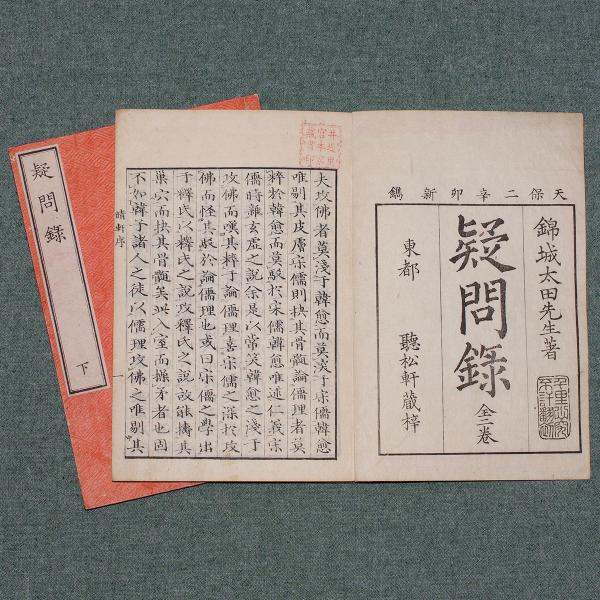 天保二辛卯新鐫
錦城太田先生著
疑問錄
全二卷
東都 聽松軒藏梓
千里必究
不許翻刻
夫攻佛者莫淺于韓愈而莫深于宋儒韓愈
唯剔其皮膚宋儒則抉其骨髓論儒理者莫
粹於韓愈而莫駁於宋儒韓愈唯述仁義宋
儒時雜玄虛之說余是以常笑韓愈之淺于
攻佛而嘆其粹于論儒理喜宋儒之深於攻
佛而怪其駁於論儒理也或曰宋儒之學出
于釋氏以釋氏之說攻釋氏之說故能擣其
巢穴而抉其骨髓矣此入室而操矛者也固
不如韓子諸人之徒以儒理攻佛之唯剔其
晴軒序 一
疑問錄 下